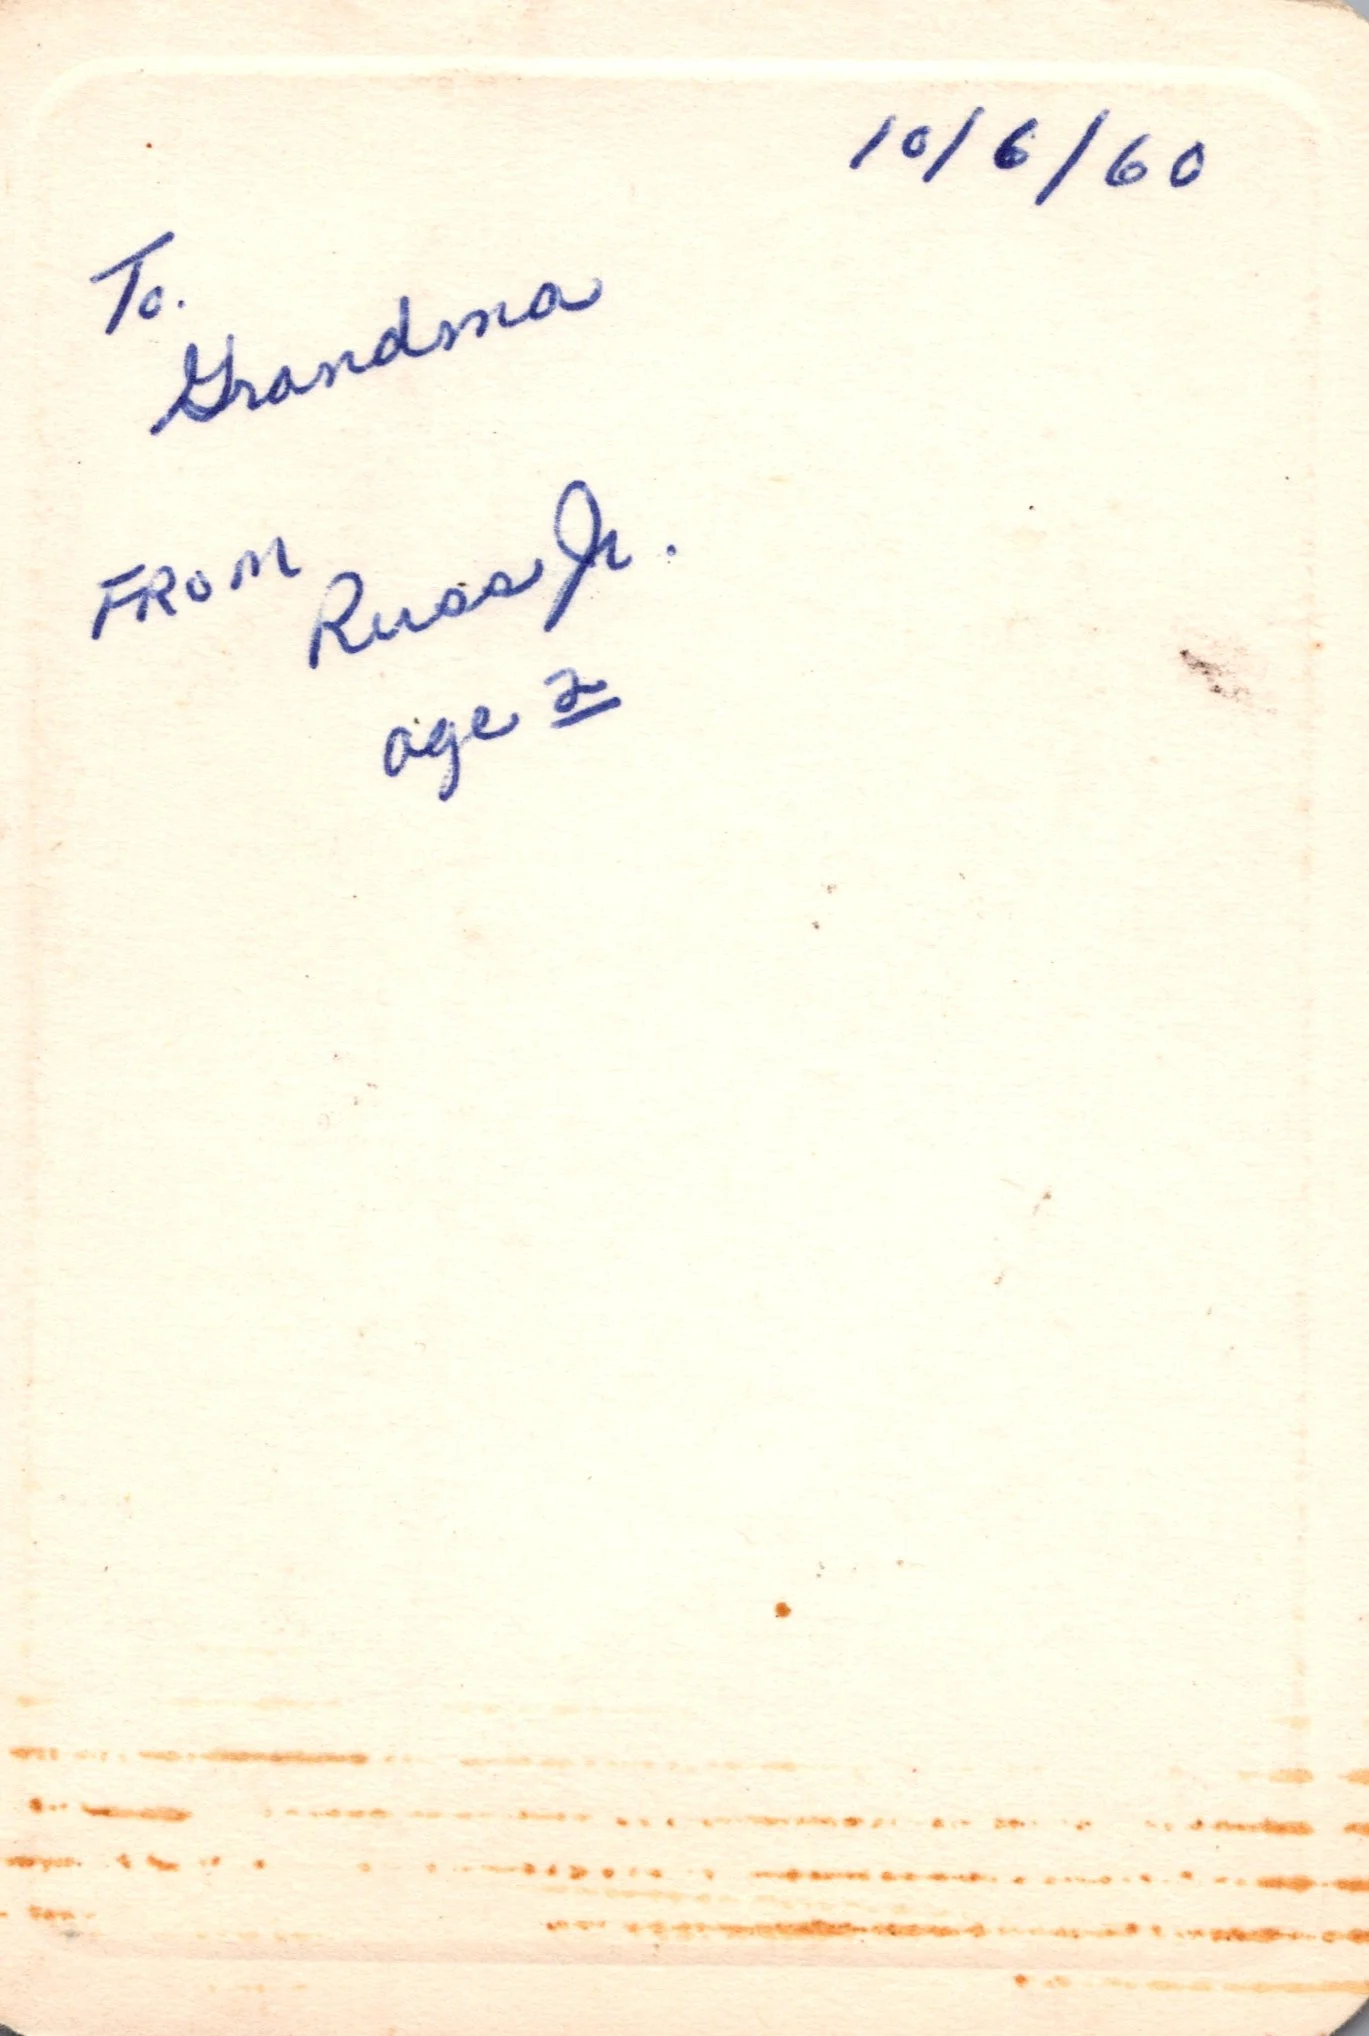 10/6/60
To.
Grandma
FROM
Russ Jr.
age 2